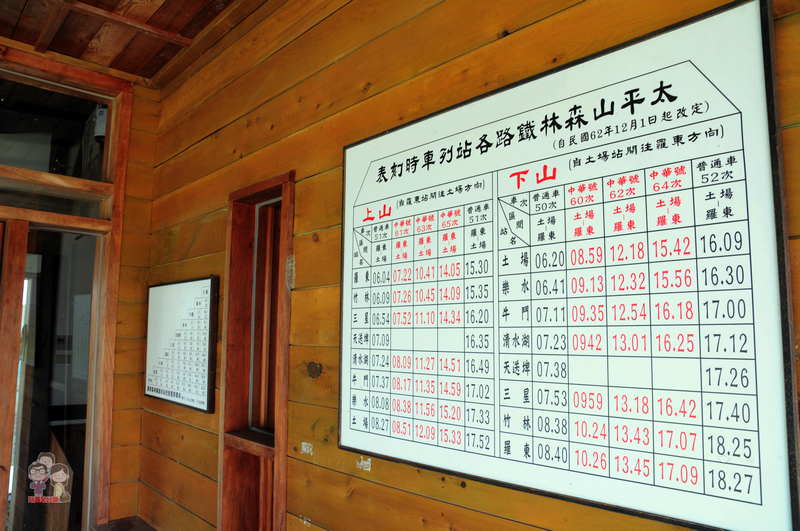 太平山森林鐵路各站列車時刻表
(自民國62年12月1日起改定)
上山 (自羅東站開往土場方向)
車次 區間 站名
普通車 中華號 中華號 中華號 普通車
51次 61次 63次 65次 51次
羅東 羅東 羅東 羅東 羅東
土場 土場 土場 土場 土場
羅東 06.04 07.22 10.41 14.05 15.30
竹林 06.09 07.26 10.45 14.09 15.35
三星 06.54 07.52 11.10 14.34 16.20
天送埤 07.09 16.35
清水湖 07.24 08.09 11.27 14.51 16.49
牛門 07.37 08.17 11.35 14.59 17.02
樂水 08.08 08.38 11.56 15.20 17.33
土場 08.27 08.51 12.09 15.33 17.52
下山 (自土場站開往羅東方向)
車次 區間 站名
普通車 中華號 中華號 中華號 普通車
50次 60次 62次 64次 52次
土場 土場 土場 土場 土場
羅東 羅東 羅東 羅東 羅東
土場 06.20 08.59 12.18 15.42 16.09
樂水 06.41 09.13 12.32 15.56 16.30
牛門 07.11 09.35 12.54 16.18 17.00
清水湖 07.23 0942 13.01 16.25 17.12
天送埤 07.38 17.26
三星 07.53 0959 13.18 16.42 17.40
竹林 08.38 10.24 13.43 17.07 18.25
羅東 08.40 10.26 13.45 17.09 18.27